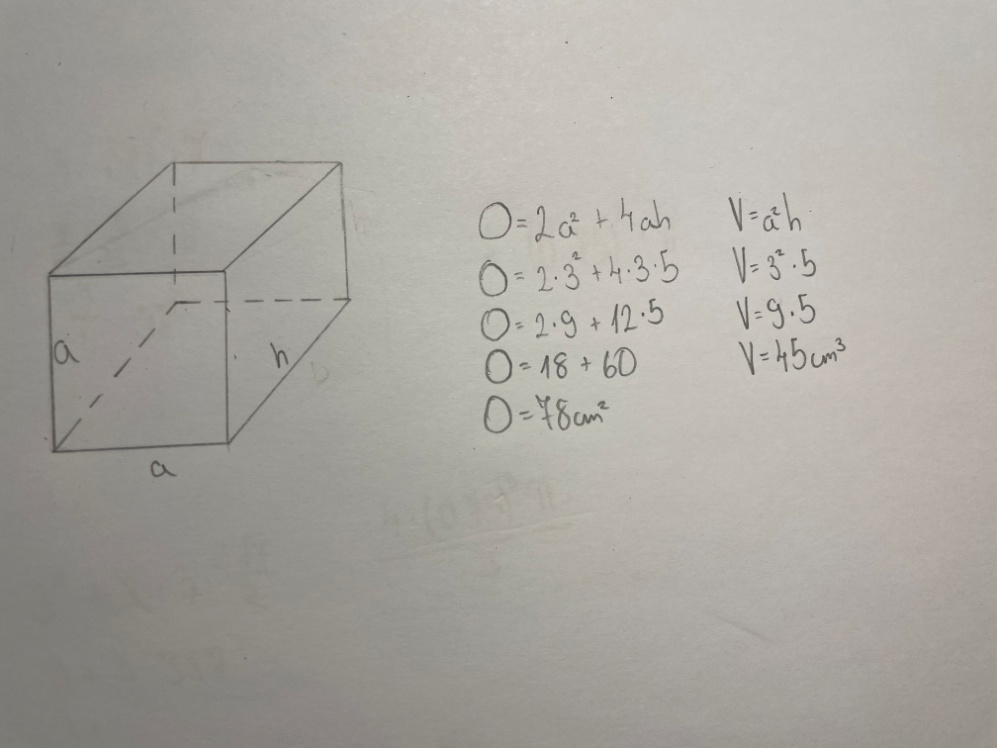 a
h
a
O=2a²+4ah
O=2·3²+4·3·5
O=2·9+12·5
O=18+60
O=78cm²
V=a²h
V=3²·5
V=9·5
V=45cm³